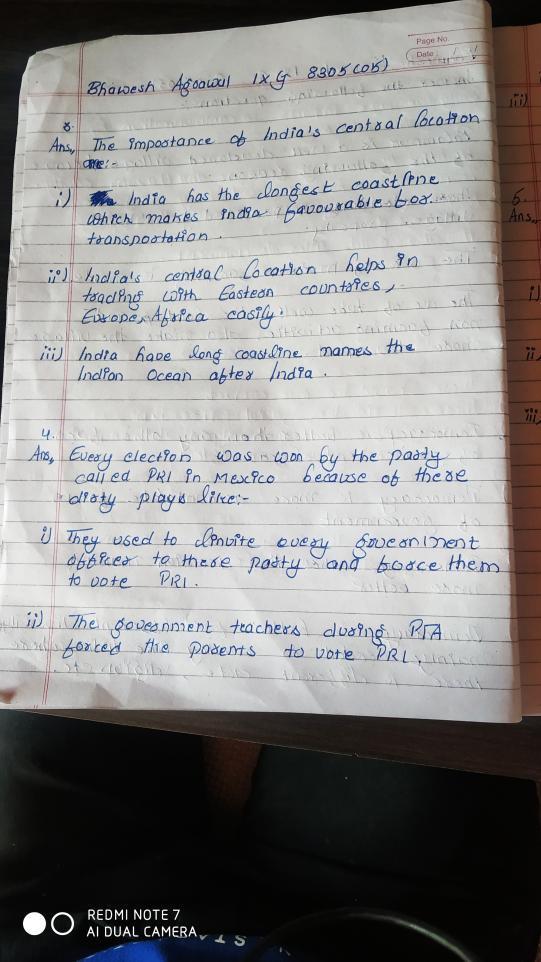 Page No.
Date
Bhawesh Agrawal IX G 8305(05)
8.
Ans, The importance of India's central location
are:-
i) India has the longest coastline
which makes india favourable for
transportation.
ii) India's central location helps in
trading with Eastern countries,
Europe, Africa easily.
iii) India have long coastline names the
Indian Ocean after India.
4.
Ans, Every election was won by the party
called PRI in Mexico because of there
dirty plays like:-
i) They used to invite every government
officer to there party and force them
to vote PRI.
ii) The government teachers during PTA
forced the parents to vote PRI.
iii)
5.
Ans,
i)
ii,
iii,
REDMI NOTE 7
AI DUAL CAMERA